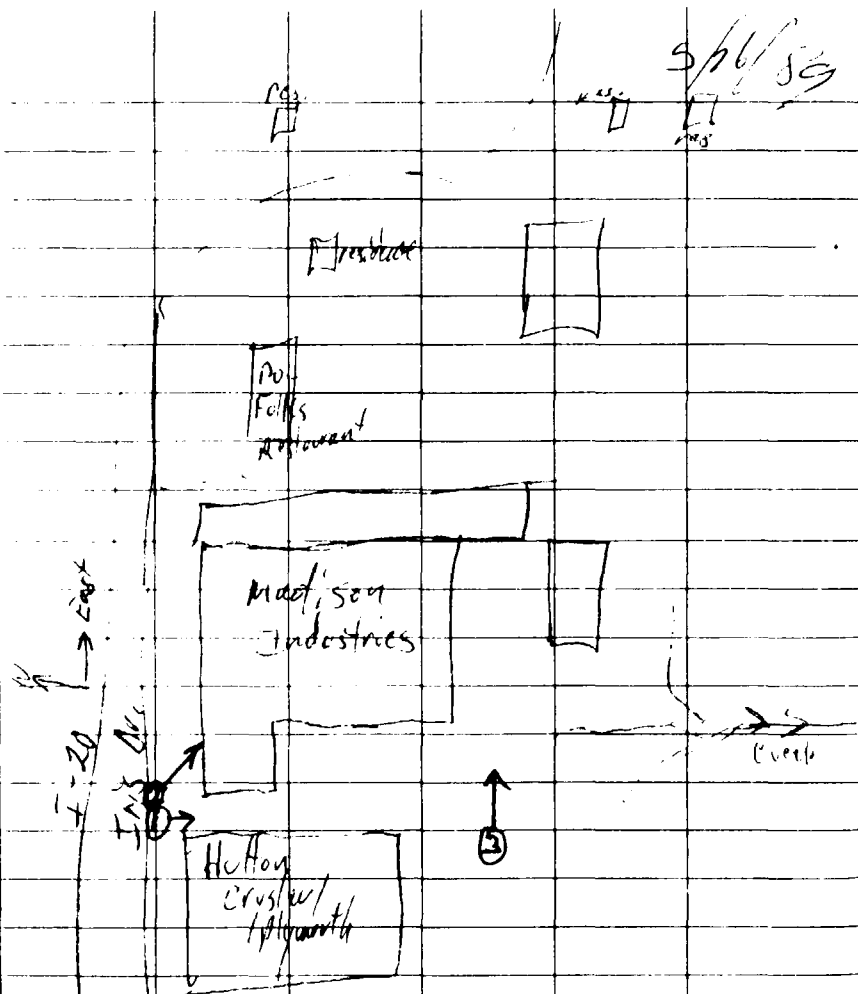 res
res
residence
Po
Folks
Restaurant
Madison
Industries
→ East
I-20
Creek
3
Hutton
Crysler/
/Plymouth